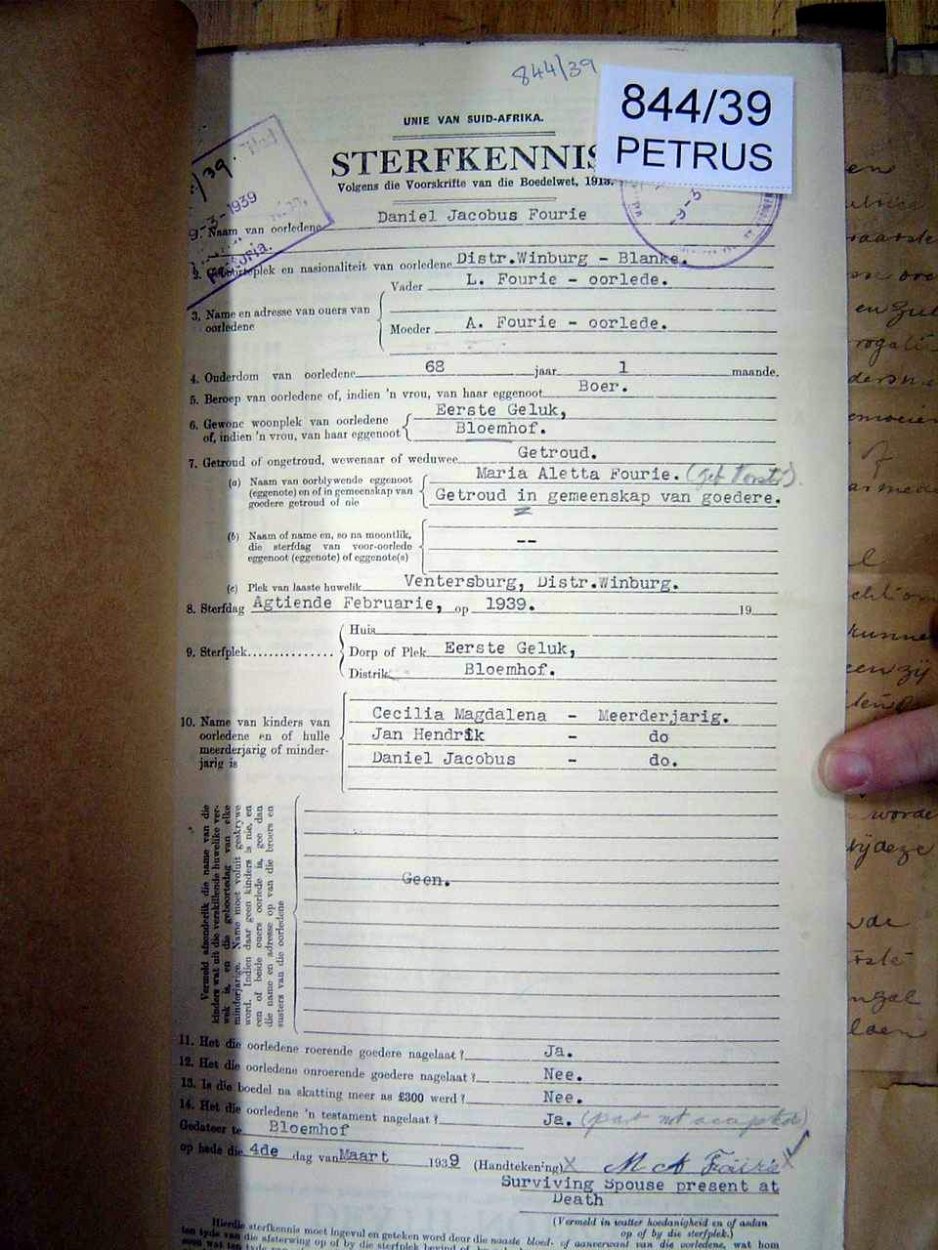 844/39
844/39
PETRUS
UNIE VAN SUID-AFRIKA.
STERFKENNIS
Volgens die Voorskrifte van die Boedelwet, 1913.
/39.
9-3-1939
-9-3
Naam van oorledene Daniel Jacobus Fourie
2. Geboorteplek en nasionaliteit van oorledene Distr.Winburg - Blanke.
3. Name en adresse van ouers van oorledene
Vader L. Fourie - oorlede.
Moeder A. Fourie - oorlede.
4. Ouderdom van oorledene 68 jaar 1 maande.
5. Beroep van oorledene of, indien 'n vrou, van haar eggenoot Boer.
6. Gewone woonplek van oorledene
of, indien 'n vrou, van haar eggenoot
Eerste Geluk,
Bloemhof.
7. Getroud of ongetroud, wewenaar of weduwee Getroud.
(a) Naam van oorblywende eggenoot
(eggenote) en of in gemeenskap van
goedere getroud of nie
Maria Aletta Fourie.
Getroud in gemeenskap van goedere.
(b) Naam of name en, so na moontlik,
die sterfdag van voor-oorlede
eggenoot (eggenote) of eggenote(s)
--
(c) Plek van laaste huwelik Ventersburg, Distr.Winburg.
8. Sterfdag Agtiende Februarie, op 1939. 19
9. Sterfplek
Huis
Dorp of Plek Eerste Geluk,
Distrik Bloemhof.
10. Name van kinders van
oorledene en of hulle
meerderjarig of minder-
jarig is
Cecilia Magdalena - Meerderjarig.
Jan Hendrik - do
Daniel Jacobus - do.
Vermeld afsonderlik die name van die
kinders wat uit die verskillende huwelike ver-
wek is, en die geboortedag van elke
minderjarige. Name moet voluit geskrywe
word. Indien daar geen kinders is nie, en
een of beide ouers oorlede is, gee dan
die name en adresse op van die broers en
susters van die oorledene
Geen.
11. Het die oorledene roerende goedere nagelaat? Ja.
12. Het die oorledene onroerende goedere nagelaat? Nee.
13. Is die boedel na skatting meer as £300 werd? Nee.
14. Het die oorledene 'n testament nagelaat? Ja. (
Gedateer te Bloemhof
op hede die 4de dag van Maart 1939 (Handtekening) X M A Fourie X
Surviving Spouse present at
Death
(Vermeld in watter hoedanigheid en of aldan
op of by die sterfplek.)
Hierdie sterfkennis moet ingevul en geteken word deur die naaste bloed- of aanverwant van die oorledene, wat hom